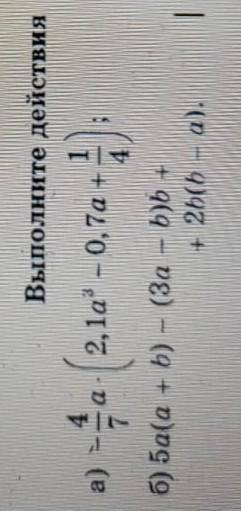 Выполните действия
а) -4/7 a · (2,1a³ - 0,7a + 1/4);
б) 5a(a + b) - (3a - b)b +
+ 2b(b - a).